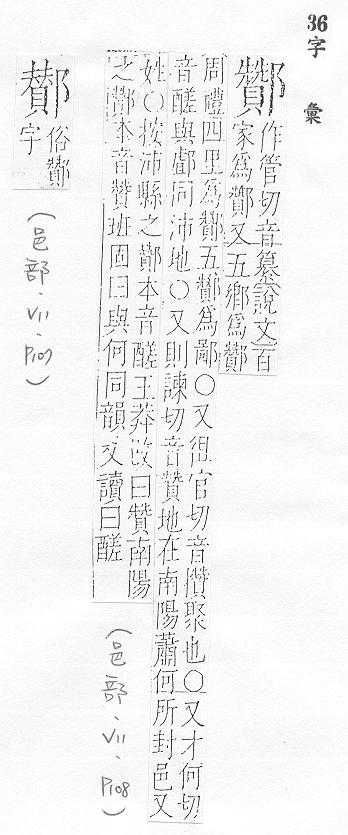 36字彙
酇
作管切音纂說文百
家爲酇又五鄉爲酇
周禮四里爲酇五酇爲鄙〇又徂官切音攢聚也〇又才何切
音醝與䣜同沛地〇又則諫切音贊地在南陽蕭何所封邑又
姓〇按沛縣之酇本音醝王莽改曰贊南陽
之酇本音贊班固曰與何同韻又讀曰醝
(邑部.V11.P108)
俗酇
字
(邑部.V11.P107)